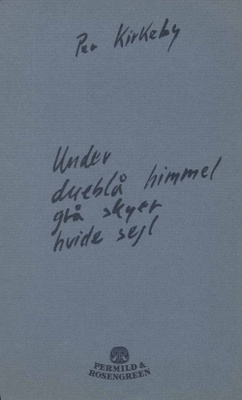 Per Kirkeby
Under
dueblå himmel
grå skyer
hvide sejl
PERMILD &
ROSENGREEN